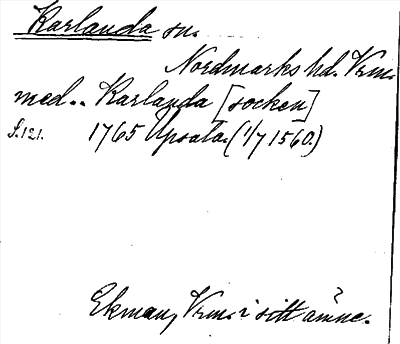 Karlanda sn.
Nordmarks hd. Vrm.
med.. Karlanda [socken]
s. 121. 1765 Upsala. (1/7 1560.)
Ekman, Vrm. i sitt ämne.